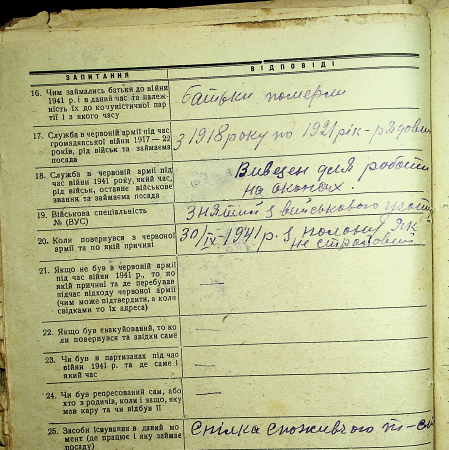 ЗАПИТАННЯ
ВІДПОВІДІ
16. Чим займались батьки до війни
1941 р. і в даний час та належ-
ність їх до комуністичної пар-
тії і з якого часу
батьки померли
17. Служба в червоній армії під час
громадянської війни 1917—22
років, рід військ та займаема
посада
з 1918 року по 1921 рік - рядовий
18. Служба в червоній армії
під час війни 1941 року, який час,
рід військ, останнє військове
звання та займаема посада
Вивезен для роботи
на окопах.
19. Військова спеціальність
№ (ВУС)
знятий з військового
20. Коли повернувся з червоної
армії та по якій причині
30/IV-1941 р. з полону як
не строковий
21. Якщо не був в червоній армії
під час війни 1941 р., то по
якій причині та де перебував
підчас відходу червоної армії
(чим може підтвердити, а коли
свідками то їх адреса)
—
22. Якщо був евакуйований, то ко-
ли повернувся та звідки саме
—
23. Чи був в партизанах під час
війни 1941 р. та де саме і
який час
—
24. Чи був репресований сам, або
хто з родичів, коли і защо, яку
мав кару та чи відбув її
—
25. Засоби існування в даний мо-
мент (де працює і яку займає
посаду)
Спілка споживчого